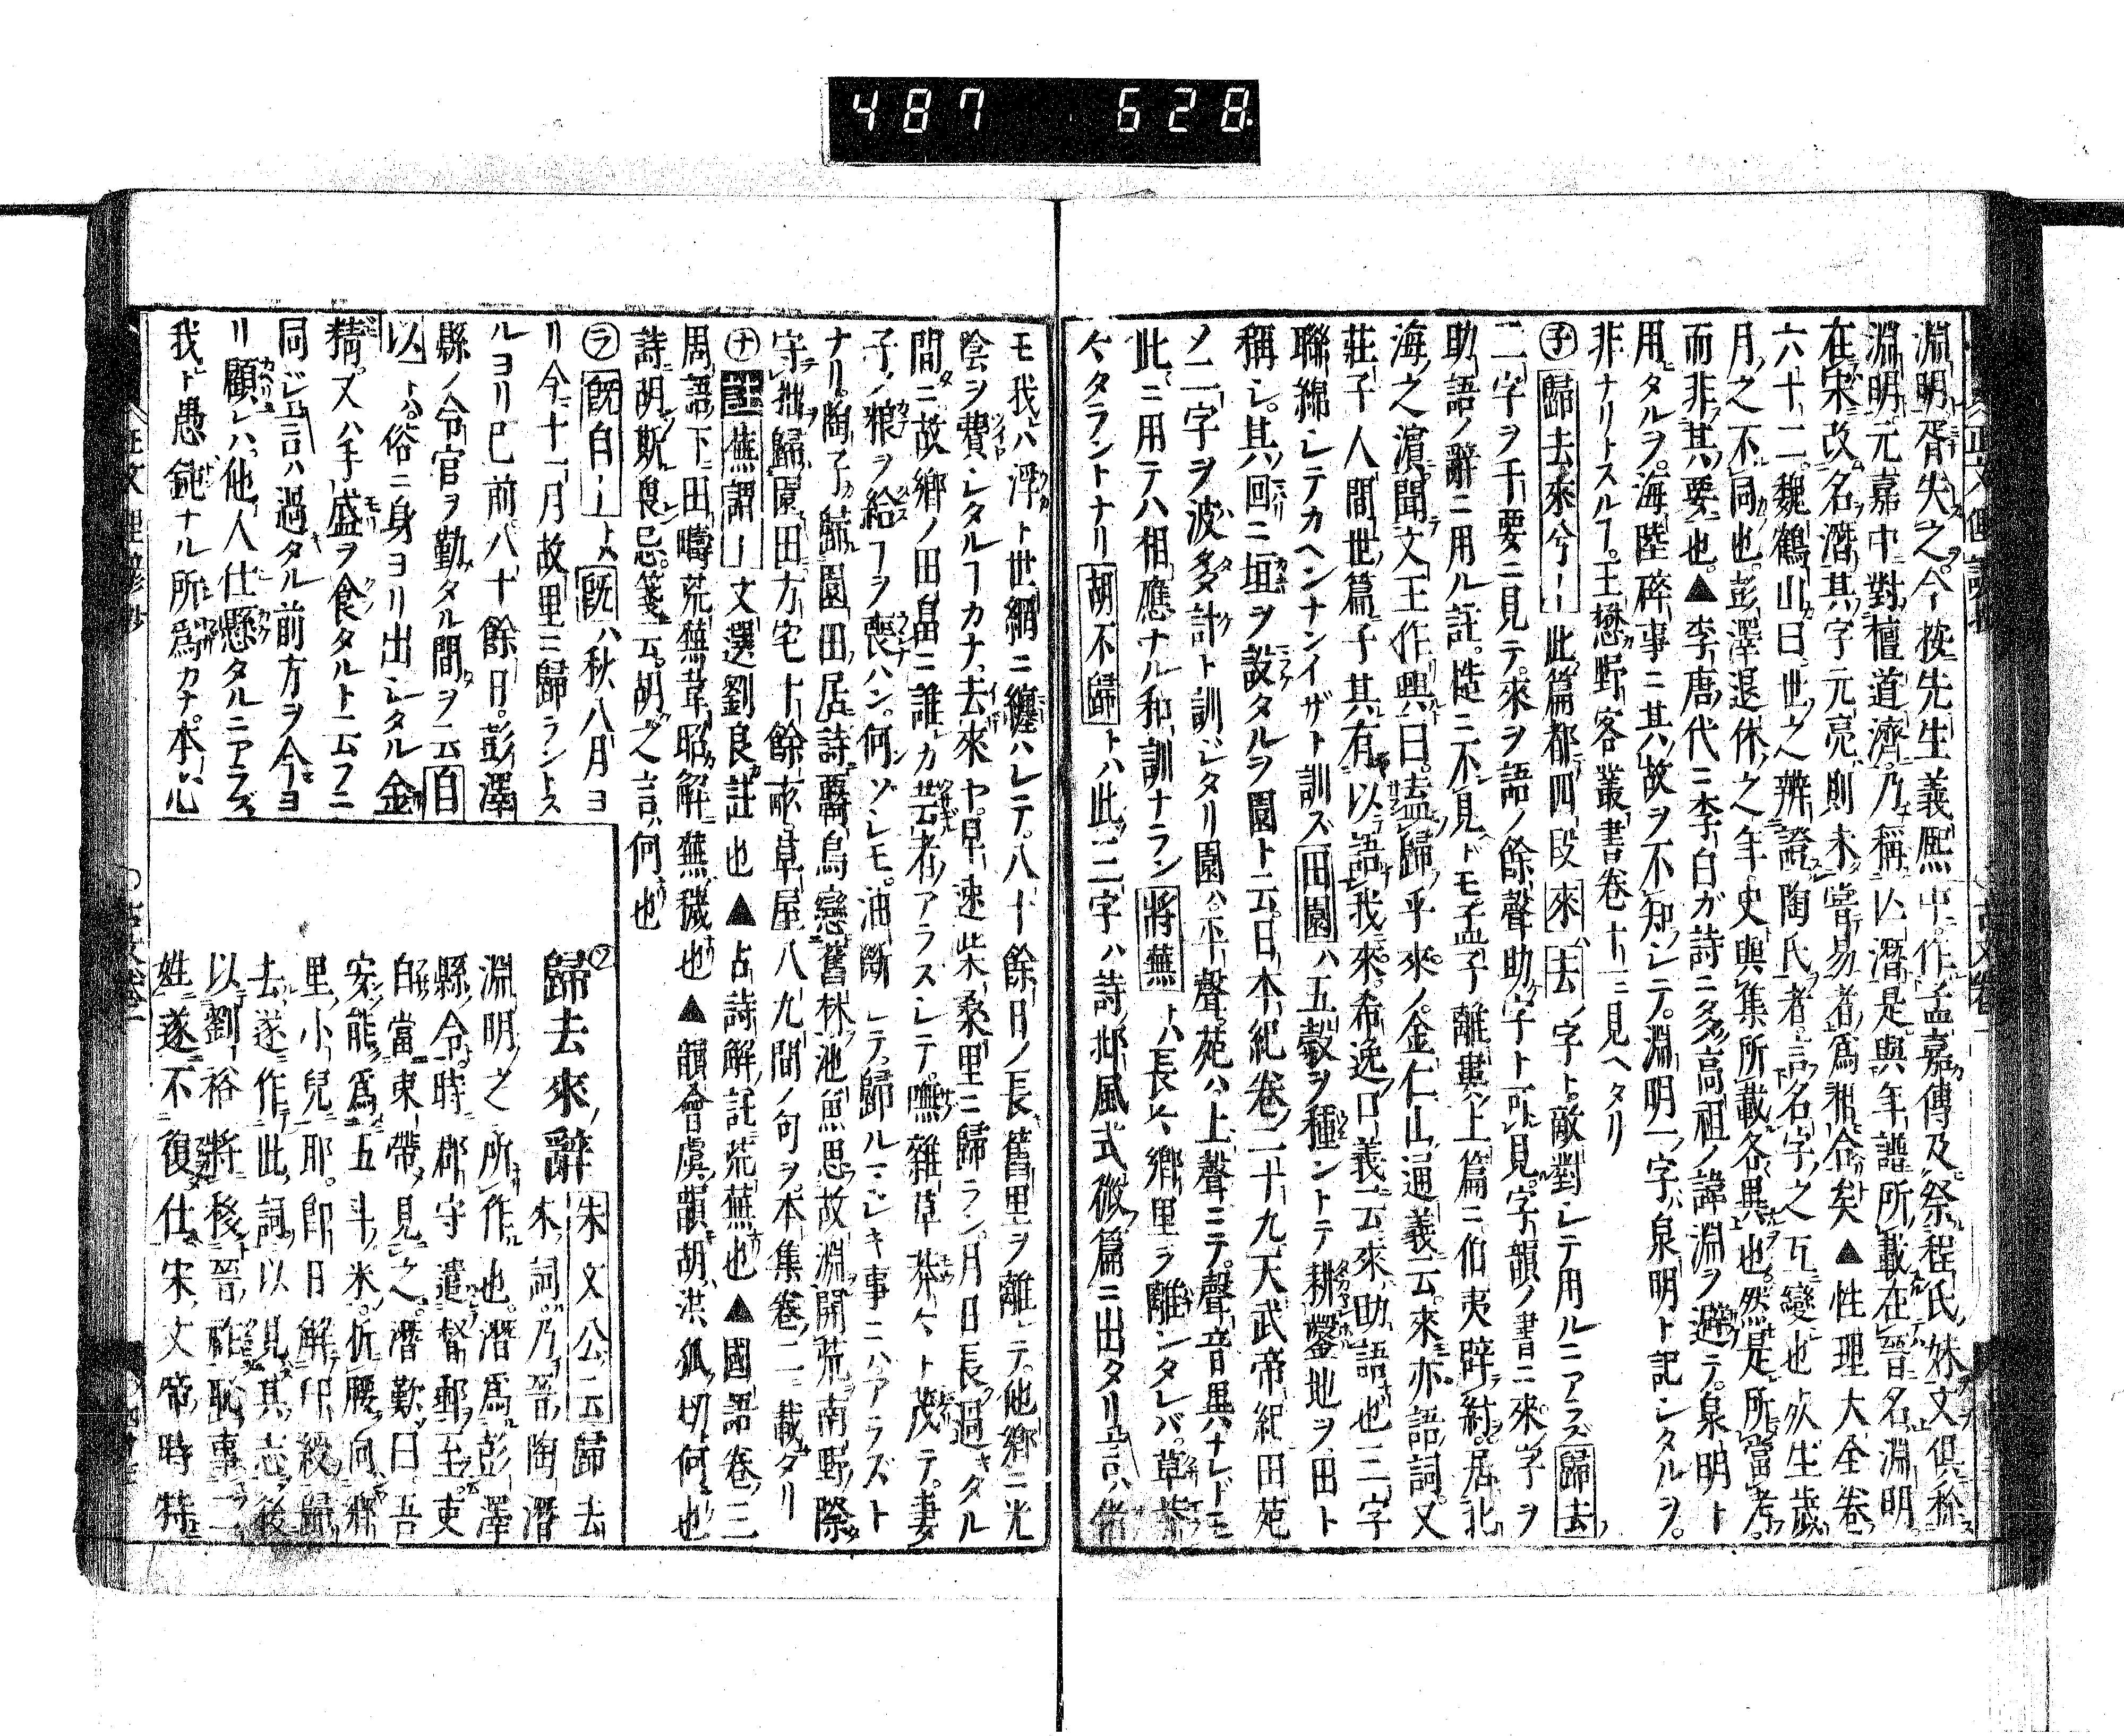 487 628
淵明胥失之今按先生義熙中作孟嘉傳及祭程氏妹文俱稱
淵明元嘉中對檀道濟乃稱潛是與年譜所載在晉名淵明
在宋改名潛其字元亮則未嘗易者爲相合矣▲性理大全卷
六十二魏鶴山曰世之辨證陶氏者言名字之互變也死生歲
月之不同也彭澤退休之年史與集所載各異也然是所當考
而非其要也▲李唐代ニ李白ガ詩ニ多高祖ノ諱淵ヲ避テ泉明ト
用タルヲ海陸碎事ニ其故ヲ不知シテ淵明一字泉明ト記シタルヲ
非ナリトスルヿ王楙野客叢書卷十二ニ見ヘタリ
㋭歸去來兮ー此篇都四段來去ノ字ト敵對シテ用ルニアラズ歸去
二字ヲ干要ニ見テ來ヲ語ノ餘聲助字ト可見字韻ノ書ニ來字ヲ
助語ノ辭ニ用ル註慥ニ不見ドモ孟子離婁上篇ニ伯夷辟紂居北
海之濱聞文王作興曰盍歸乎來ノ金仁山通義云來亦語詞又
莊子人間世篇子其有以語我來希逸口義云來助語也三字
聯綿シテカヘンナンイザト訓ズ田園ハ五穀ヲ種ントテ耕鑿地ヲ田ト
稱シ其回ニ垣ヲ設タルヲ園ト云日本紀卷二十九天武帝紀田苑
ノ二字ヲ波多計ト訓ジタリ園ハ平聲苑ハ上聲ニテ聲音異ナレドモ
此ニ用テハ相應ナル和訓ナラン將蕪トハ長々鄕里ヲ離ンタレバ草茶
々タラントナリ胡不歸トハ此三字ハ詩邶風式微篇ニ出タリ言ハ
モ我ハ浮ト世網ニ纏ハレテ八十餘日ノ長舊里ヲ離テ他鄕ニ光
陰ヲ費シタルヿカナ去來ヤ早速柴桑里ニ歸ラン月日長過キタル
間ニ故鄕ノ田畠ニ誰カ芸者アラズシテ嘸雜草茶々ト茂テ妻
子ノ粮ヲ給ヿヲ喪ハン何ソレモ油斷シテ歸ルマジキ事ニハアラズト
ナリ陶子歸園田居詩羈鳥戀舊林池魚思故淵開荒南野際
守拙歸園田方宅十餘畝草屋八九間ノ句ヲ本集卷二ニ載タリ
㋤註蕪謂ー文選劉良註也▲占詩解註荒蕪也▲國語卷三
周語下田疇荒蕪韋昭解蕪穢也▲韻會虞韻胡洪狐切何也
詩胡斯畏忌箋云胡之言何也
㋶既自ートハ既ハ秋八月ヨ
リ今十一月故里ニ歸ラントス
ルヨリ已前八十餘日彭澤
縣ノ令官ヲ勤タル間ヲ云自
以ートハ俗ニ身ヨリ出シタル金
精又ハ手盛ヲ食タルト云フニ
同ジ言ハ過タル前方ヲ今ヨ
リ顧レハ他人仕懸タルニアラズ
我ト愚鈍ナル所爲カナ本心
㋷歸去來辭朱文公云歸去
來詞乃晉陶潛
淵明之所作也潛爲彭澤
縣令時郡守遣督郵至吏
白當束帶見之潛歎曰吾
安能爲五斗米折腰向鄕
里小兒耶即日解印綬歸
去遂作此詞以見其志後
以劉裕將移晉祚恥事二
姓遂不復仕宋文帝時特